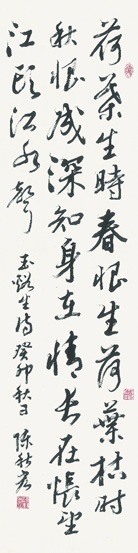 荷葉生時春恨生荷葉枯时
秋恨成深知身在情长在悵望
江头江水聲
玉谿生诗癸卯秋日陈秋